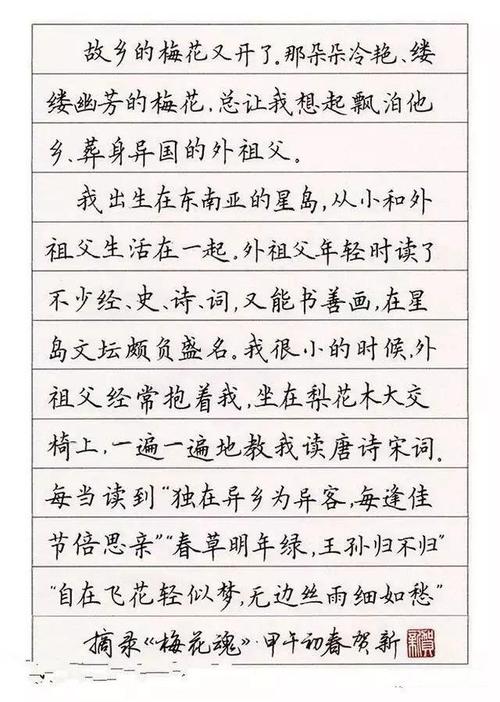 故乡的梅花又开了。那朵朵冷艳、缕
缕幽芳的梅花,总让我想起飘泊他
乡、葬身异国的外祖父。
我出生在东南亚的星岛,从小和外
祖父生活在一起。外祖父年轻时读了
不少经、史、诗、词,又能书善画,在星
岛文坛颇负盛名。我很小的时候,外
祖父经常抱着我,坐在梨花木大交
椅上,一遍一遍地教我读唐诗宋词。
每当读到“独在异乡为异客,每逢佳
节倍思亲”“春草明年绿,王孙归不归”
“自在飞花轻似梦,无边丝雨细如愁”
摘录《梅花魂》·甲午初春贺新
贺新